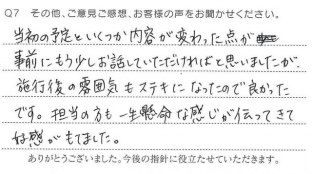 Q7 その他、ご意見ご感想、お客様の声をお聞かせください。
当初の予定といくつか内容が変わった点が
事前にもう少しお話していただければと思いましたが、
施行後の雰囲気もステキになったので良かった
です。担当の方も一生懸命な感じが伝ってきて
好感がもてました。
ありがとうございました。今後の指針に役立たせていただきます。